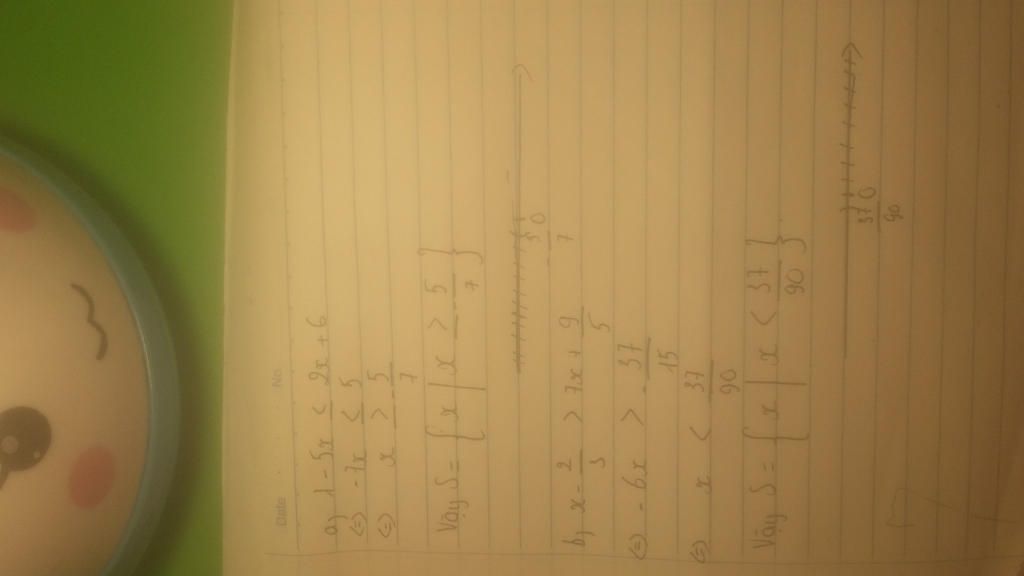 Date No.
a, 1 - 5x ≤ 2x + 6
(=) -7x ≤ 5
(=) x ≥ -5/7
Vậy S = { x | x ≥ -5/7 }
-5/7 0
b, x - 2/3 > 7x + 9/5
(=) -6x > 37/15
(=) x < 37/90
Vậy S = { x | x < 37/90 }
37/90 0